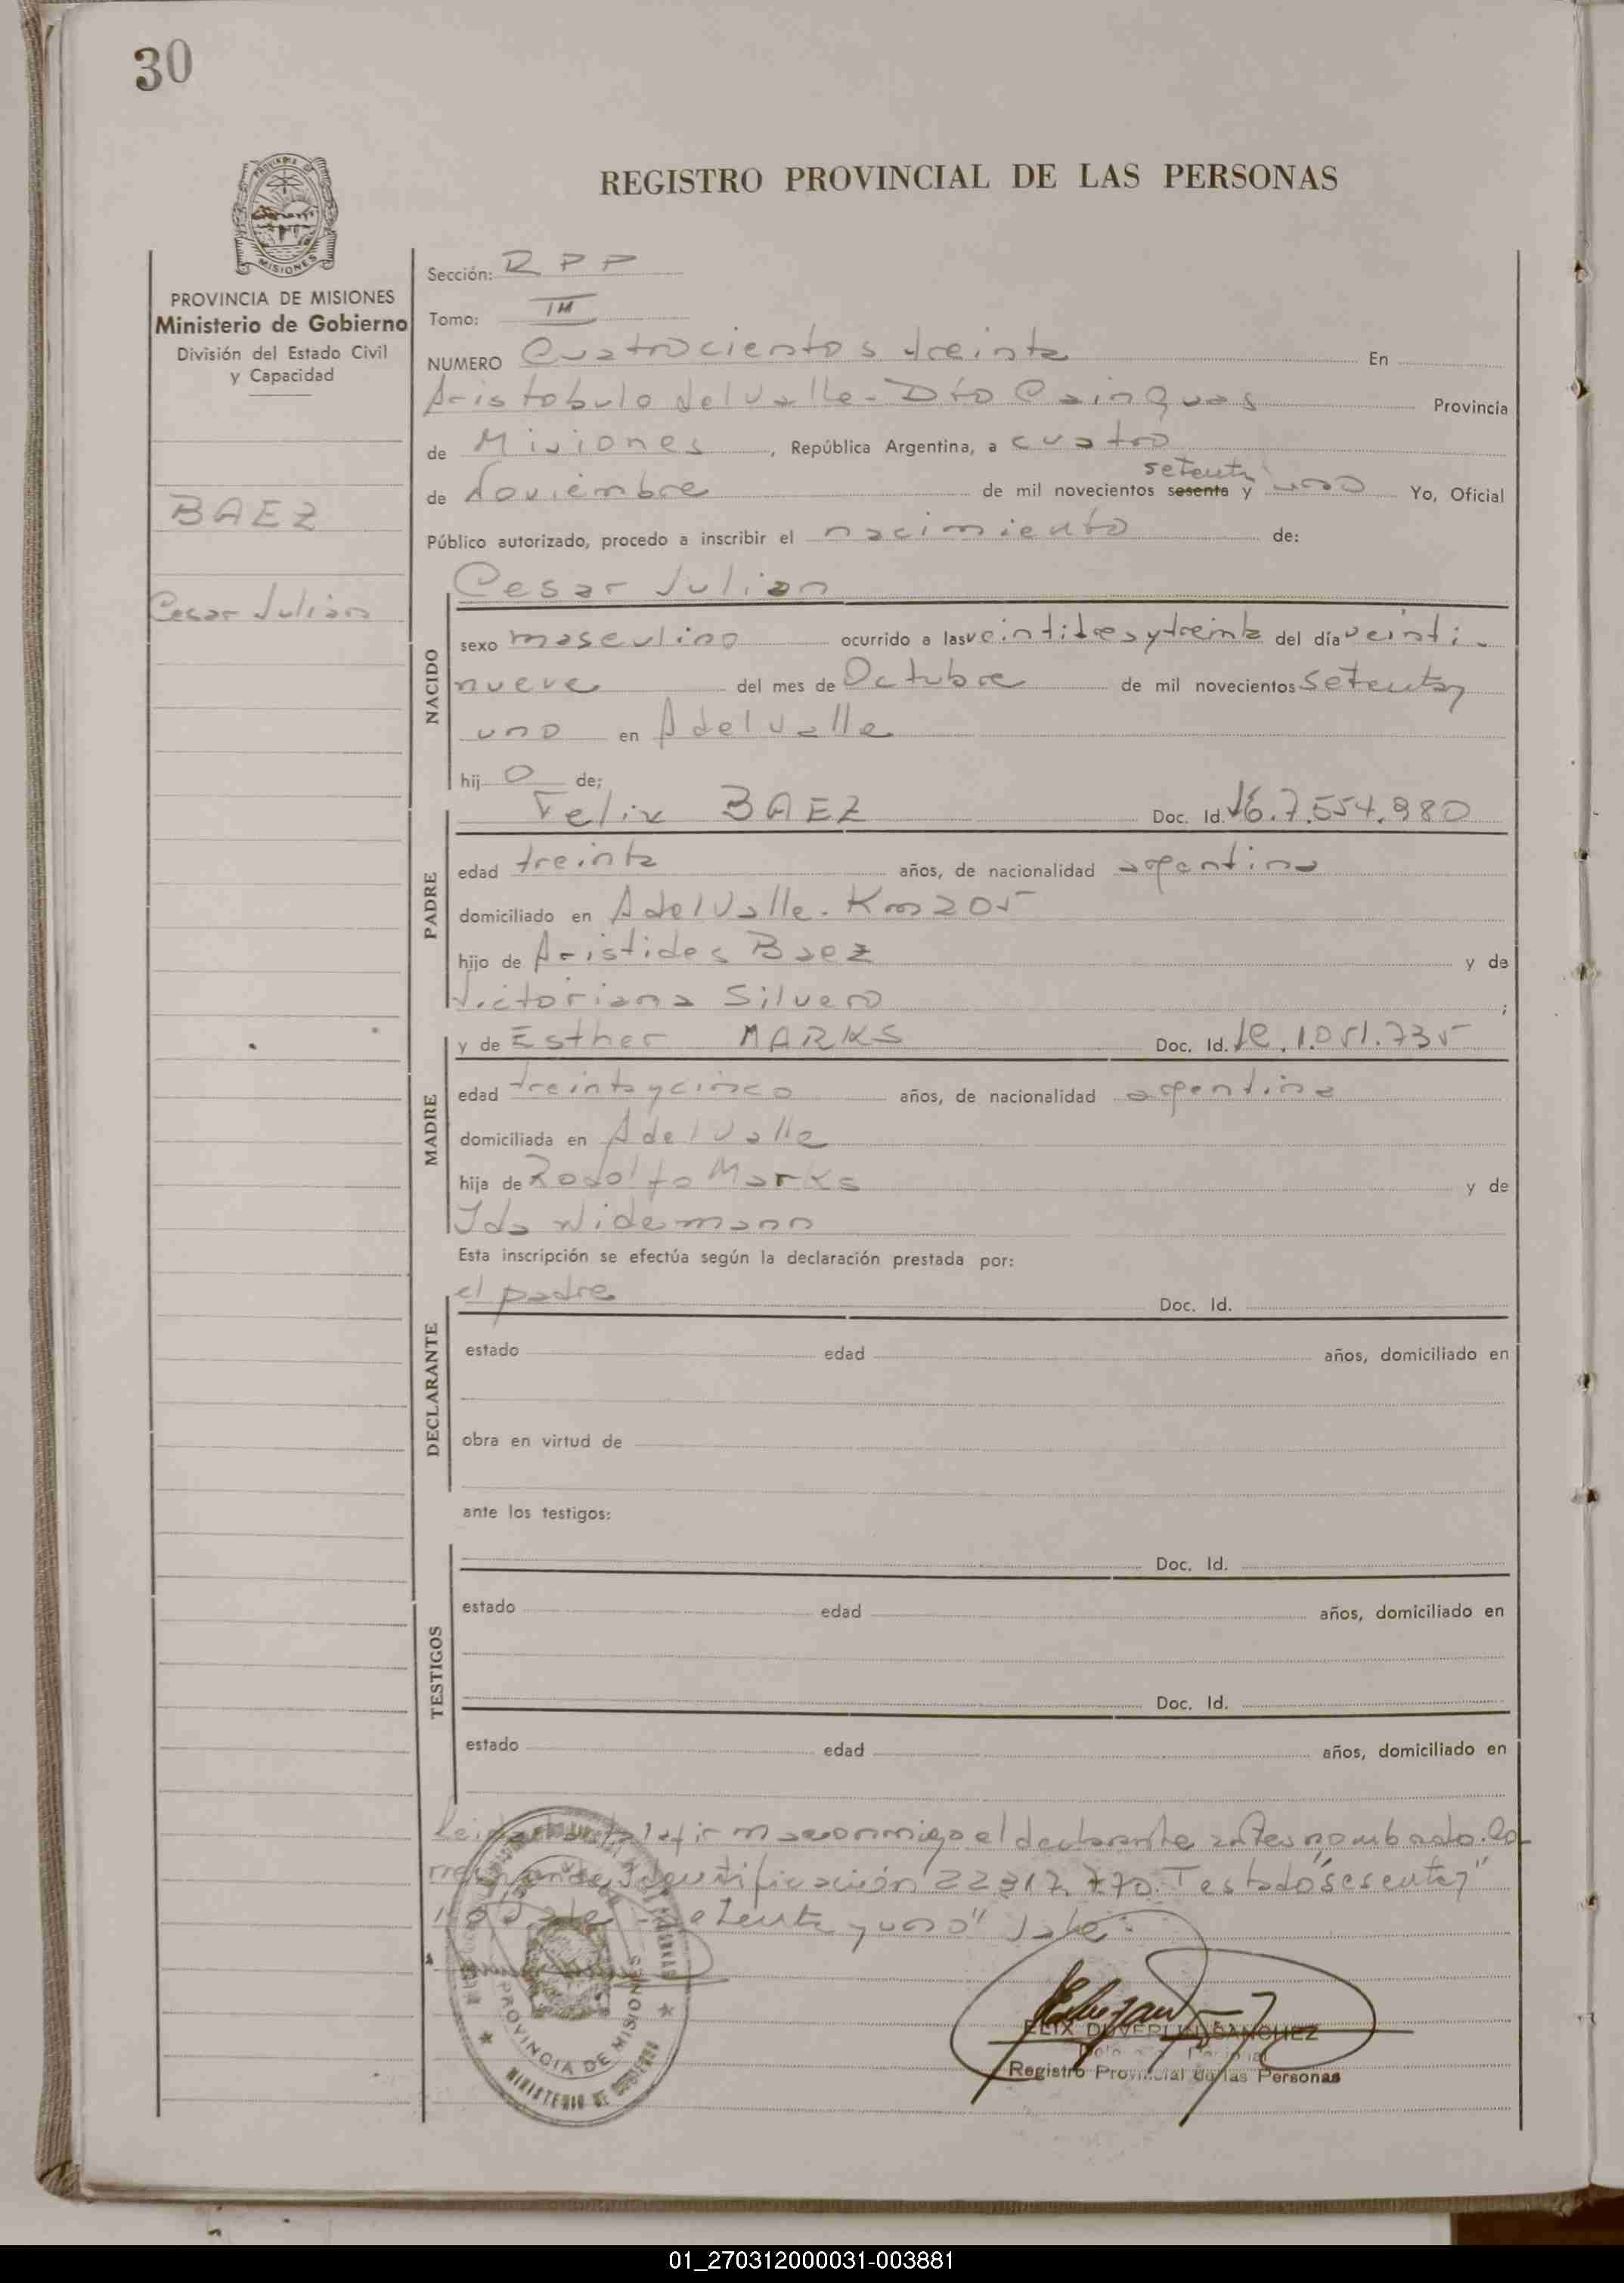 30
PROVINCIA DE
MISIONES
REGISTRO PROVINCIAL DE LAS PERSONAS
PROVINCIA DE MISIONES
Ministerio de Gobierno
División del Estado Civil
y Capacidad
BAEZ
Cesar Julian
Sección: RPP
Tomo: III
NUMERO Cuatrocientos treinta En
Aristobulo del Valle - Dto Cainguas Provincia
de Misiones, República Argentina, a cuatro
setenta
de Noviembre de mil novecientos sesenta y uno Yo, Oficial
Público autorizado, procedo a inscribir el nacimiento de:
Cesar Julian
NACIDO
sexo masculino ocurrido a las veintitres y treinta del día veinti-
nueve del mes de Octubre de mil novecientos setenta y
uno en Adelvalle
hij o de;
PADRE
Felix BAEZ Doc. Id. 7.554.980
edad treinta años, de nacionalidad argentino
domiciliado en Adelvalle. Km 205
hijo de Aristides Baez y de
Victoriana Silvero ;
MADRE
y de Esther MARKS Doc. Id. 1.051.735
edad treinta y cinco años, de nacionalidad argentina
domiciliada en Adelvalle
hija de Rodolfo Marks y de
Ida Widemann
Esta inscripción se efectúa según la declaración prestada por:
DECLARANTE
el padre Doc. Id.
estado edad años, domiciliado en
obra en virtud de
ante los testigos:
TESTIGOS
Doc. Id.
estado edad años, domiciliado en
Doc. Id.
estado edad años, domiciliado en
firma conmigo el declarante antes nombrado. Co-
Identificación 22.317.770. Testado "sesenta y"
"setenta y uno" Vale.
PROVINCIA DE MISIONES
MINISTERIO DE GOBIERNO
SANCHEZ
Registro Provincial de las Personas
01_270312000031-003881